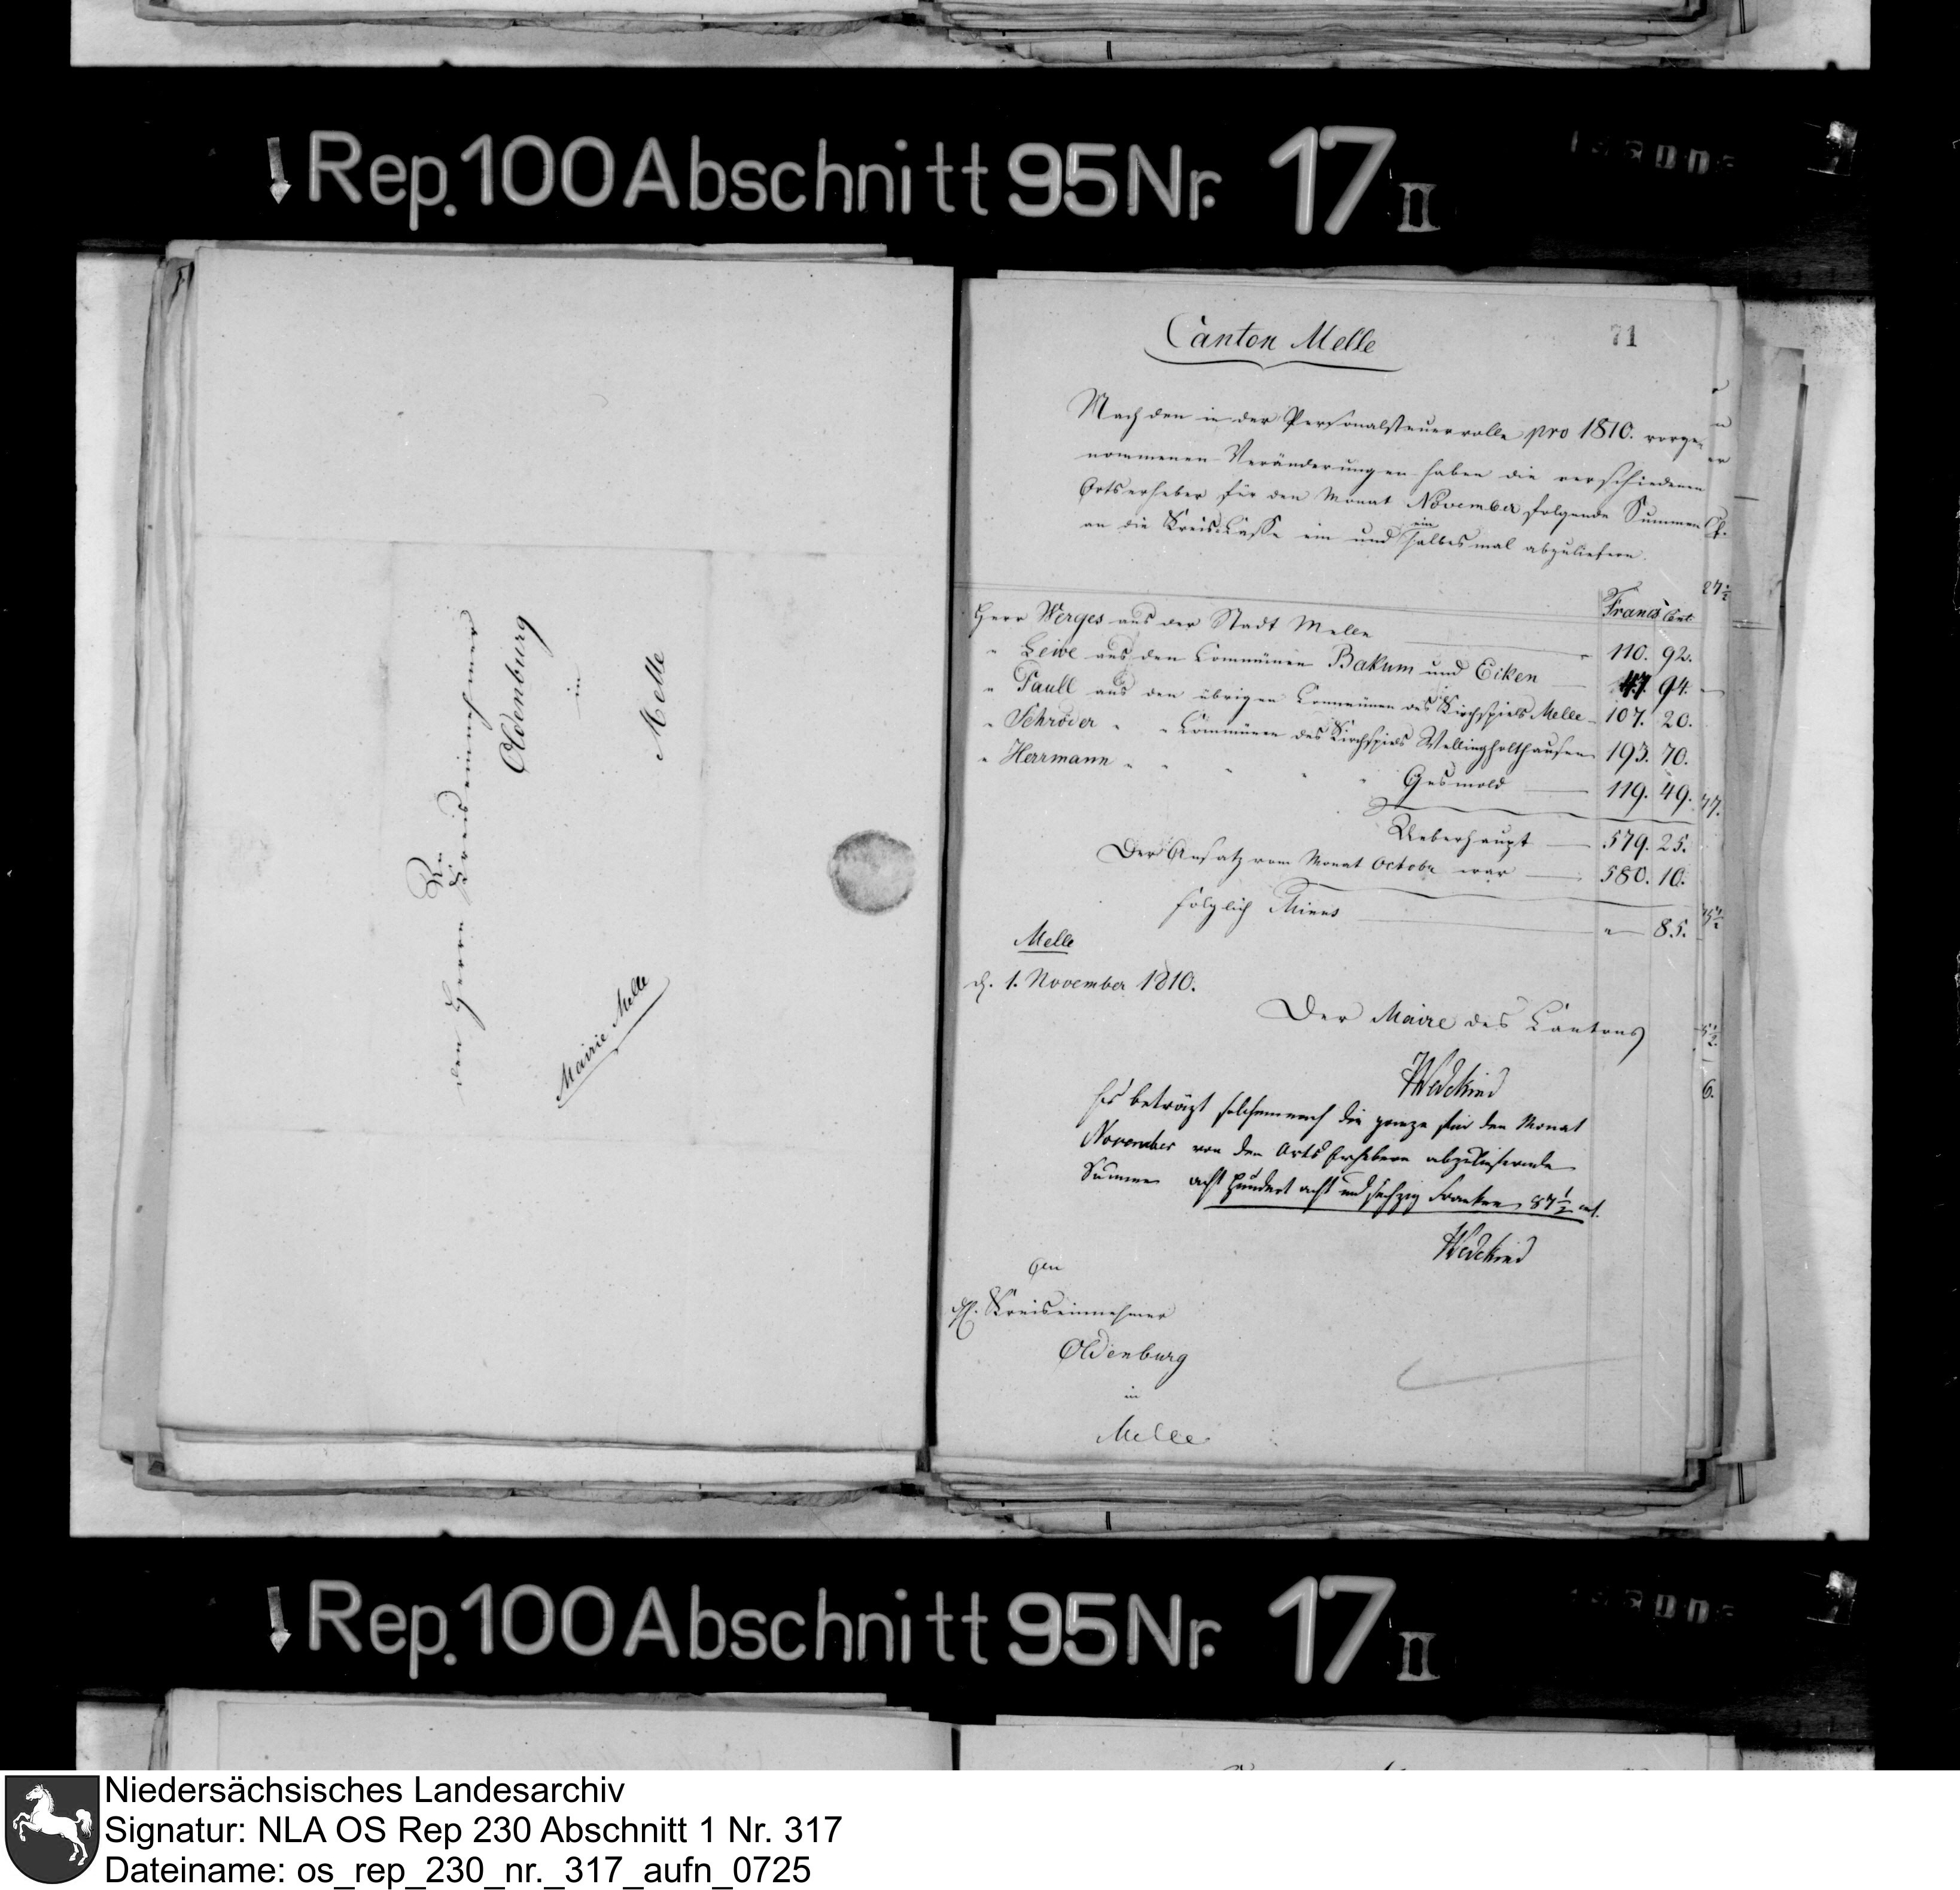 Rep. 100 Abschnitt 95 Nr. 17 II
An
den Herrn Kreiseinnehmer
Oldenburg
in
Melle
Mairie Melle
71
Canton Melle
Nach den in der Personalsteuerrolle pro 1810. vorge-
nommenen Veränderungen haben die verschiedenen
Ortserheber für den Monat November folgende Summen
an die Kreis-Casse ein und ein halbes mal abzuliefern.
Francs Cent
Herr Werges aus der Stadt Melle 110. 92.
" Leive aus den Communen Bakum und Eiken 47. 94.
" Paull aus den übrigen Communen des Kirchspiels Melle 107. 20.
" Schröder " " Communen des Kirchspiels Wellingholthausen 193. 70.
" Herrmann " " " " " Gesmold 119. 49.
Ueberhaupt 579. 25.
Der Ansatz vom Monat Octobr war 580. 10.
folglich Minus " 85.
Melle
d. 1. November 1810.
Der Maire des Cantons
Wedekind
Es beträgt solchemnach die ganze für den Monat
November von den Orts Erhebern abzuliefernde
Summe acht hundert acht und sechzig Franken 87 1/2 cent.
Wedekind
An
H. Kreiseinnehmer
Oldenburg
in
Melle
Rep. 100 Abschnitt 95 Nr. 17 II
Niedersächsisches Landesarchiv
Signatur: NLA OS Rep 230 Abschnitt 1 Nr. 317
Dateiname: os_rep_230_nr._317_aufn_0725